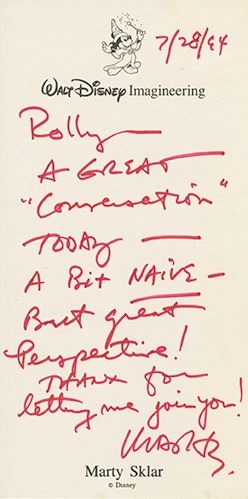 7/28/94
WALT DISNEY Imagineering
Rolly —
A GREAT
"Conversation"
TODAY —
A Bit NAIVE —
But great
Perspective!
THANX for
letting me join you!
Marty
Marty Sklar
© Disney